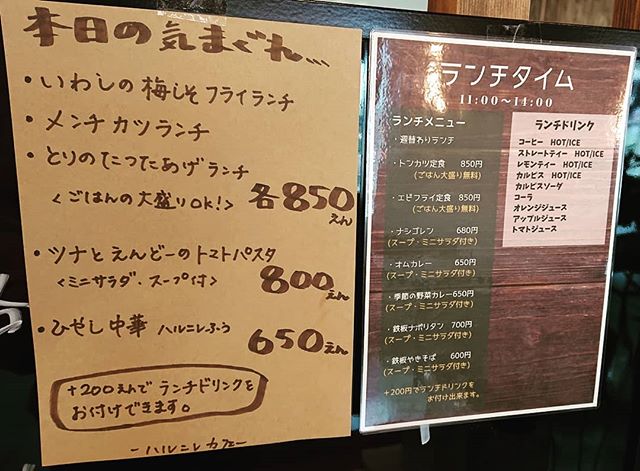 本日の気まぐれ…
・いわしの梅しそフライランチ
・メンチカツランチ
・とりのたつたあげランチ
<ごはんの大盛りOK!> 各850えん
・ツナとえんどーのトマトパスタ
<ミニサラダ・スープ付> 800えん
・ひやし中華 ハルニレふう 650えん
+200えんで ランチドリンクを
お付けできます。
ーハルニレカフェー
ランチタイム
11:00〜14:00
ランチメニュー
・週替わりランチ
・トンカツ定食 850円
(ごはん大盛り無料)
・エビフライ定食 850円
(ごはん大盛り無料)
・ナシゴレン 680円
(スープ・ミニサラダ付き)
・オムカレー 650円
(スープ・ミニサラダ付き)
・季節の野菜カレー650円
(スープ・ミニサラダ付き)
・鉄板ナポリタン 700円
(スープ・ミニサラダ付き)
・鉄板やきそば 600円
(スープ・ミニサラダ付き)
+200円でランチドリンクを
お付け出来ます。
ランチドリンク
コーヒー HOT/ICE
ストレートティー HOT/ICE
レモンティー HOT/ICE
カルピス HOT/ICE
カルピスソーダ
コーラ
オレンジジュース
アップルジュース
トマトジュース